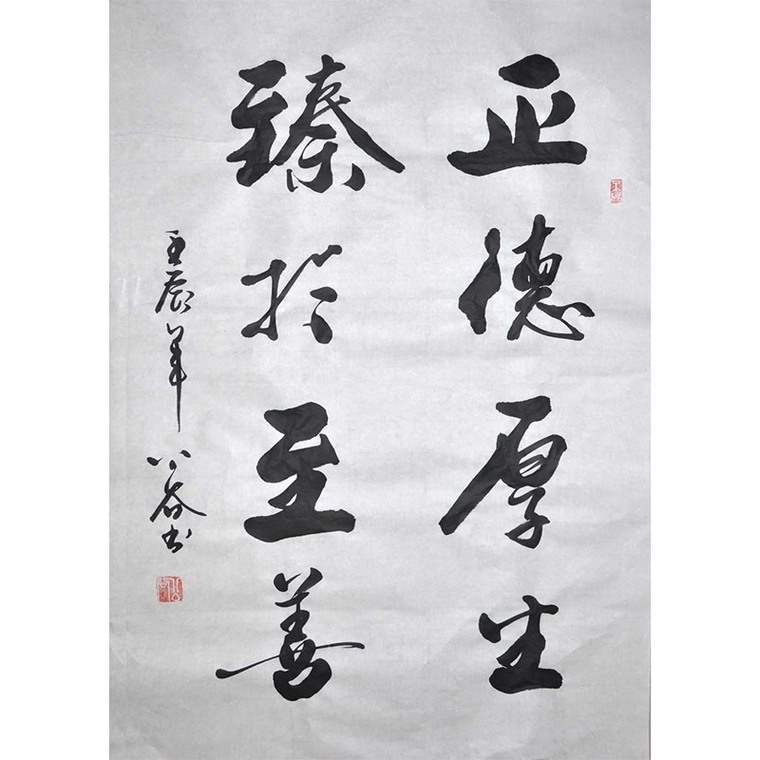 正德厚生
臻於至善
壬辰年 小谷书